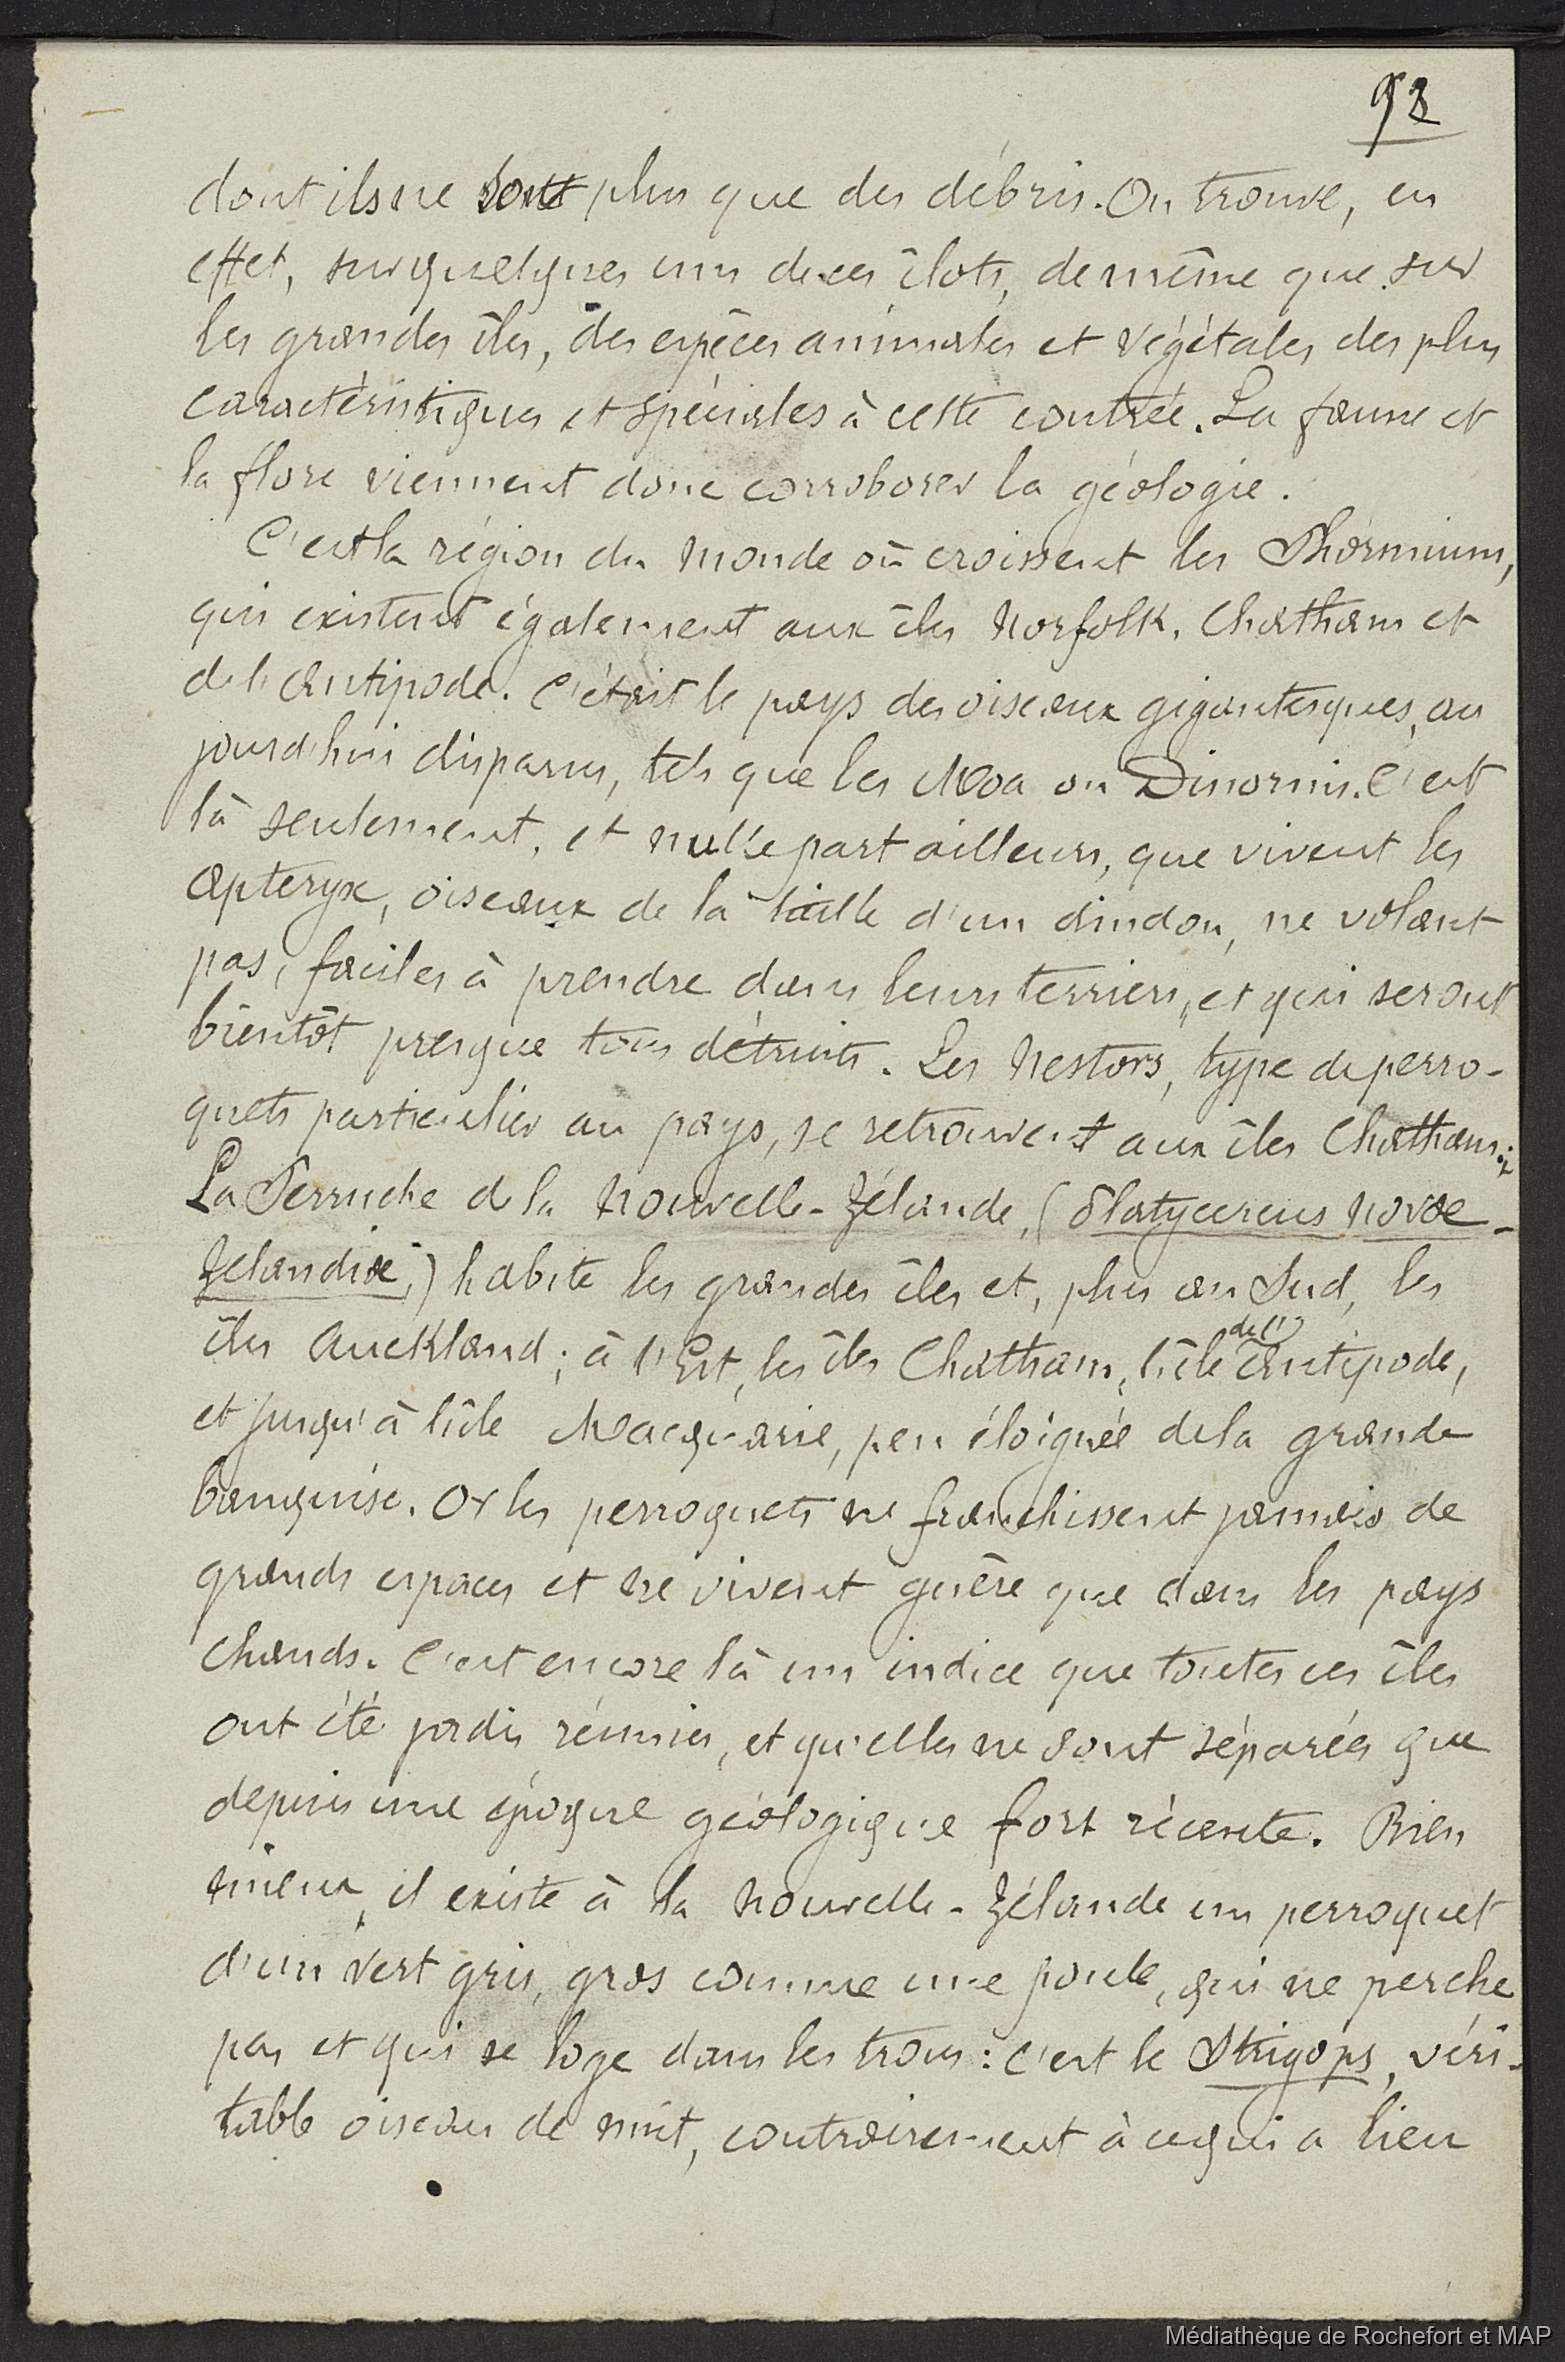 92
dont ils ne sont plus que des débris. On trouve, en
effet, sur quelques uns de ces îlots, de même que sur
les grandes îles, des espèces animales et végétales des plus
caractéristiques et spéciales à cette contrée. La faune et
la flore viennent donc corroborer la géologie.
C'est la région du monde où croissent les Phormium,
qui existent également aux îles Norfolk, Chatham et
de l'Antipode. C'était le pays des oiseaux gigantesques, au
jourd'hui disparus, tels que les Moa ou Dinornis. C'est
là seulement, et nulle part ailleurs, que vivent les
Apteryx, oiseaux de la taille d'un dindon, ne volant
pas, faciles à prendre dans leurs terriers, et qui seront
bientôt presque tous détruits. Les Nestors, type de perro-
quets particulier au pays, se retrouvent aux îles Chatham.
La Perruche de la Nouvelle-Zélande, (Platycercus Novae-
Zelandiæ,) habite les grandes îles et, plus au Sud, les
îles Auckland; à l'Est, les îles Chatham, l'île de l'Antipode,
et jusqu'à l'île Macquarie, peu éloignée de la grande
banquise. Or les perroquets ne franchissent jamais de
grands espaces et ne vivent guère que dans les pays
chauds. C'est encore là un indice que toutes ces îles
ont été jadis réunies, et qu'elles ne sont séparées que
depuis une époque géologique fort récente. Bien
mieux, il existe à la Nouvelle-Zélande un perroquet
d'un vert gris, gros comme une poule, qui ne perche
pas et qui se loge dans les trous: c'est le Strigops, véri-
table oiseau de nuit, contrairement à ce qui a lieu
Médiathèque de Rochefort et MAP